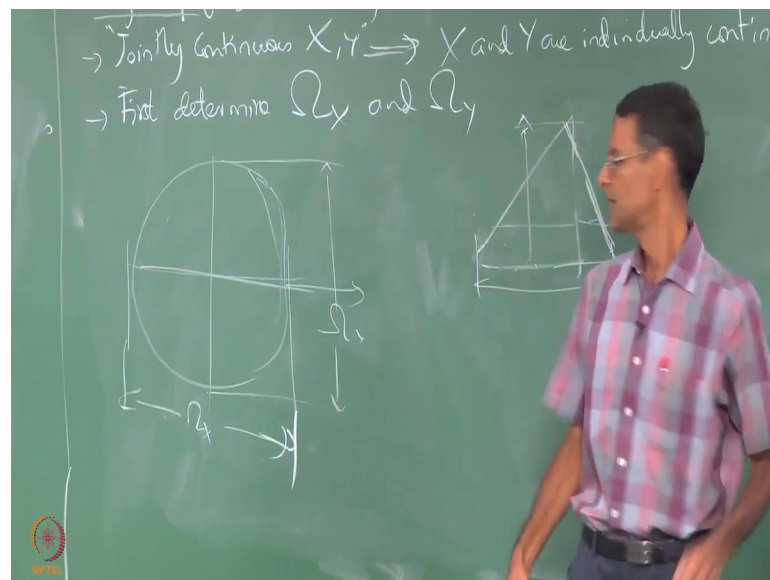 → "Jointly Continuous X, Y" ⟹ X and Y are individually contin
→ First determine Ω_X and Ω_Y
Ω_Y
Ω_X
NPTEL